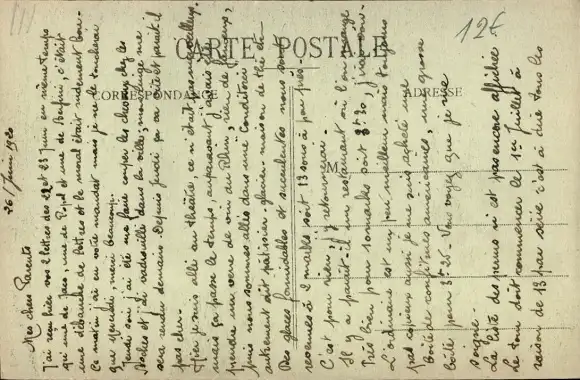 CARTE POSTALE
CORRESPONDANCE
ADRESSE
M
12f
26 Juin 1920
Mes chers Parents
J'ai reçu hier vos 2 lettres des 22 et 23 Juin en même temps
qu'une de Jane, une de Papet et une de c'était
une débauche de lettres et le moral était rudement bon.
Ce matin j'ai eu votre mandat mais je ne le toucherai
que Mercredi, merci beaucoup.
Jeudi soir j'ai été me faire couper les cheveux chez les
Boches et j'ai vadrouillé dans la ville; mon linge me
sera rendu demain. Depuis Juin ça a et paraît il
pas cher.
Hier je suis allé au théâtre ce n'était pas merveilleux,
mais ça passe le temps, auparavant j'avais été
prendre un verre de vin du Rhin, rien de fameux,
puis nous sommes allés dans une Conditorei
autrement dit pâtissier glacier. maison de thé etc
Des glaces formidables et succulentes nous sont
revenues à 2 marks soit 13 sous à peu près.
C'est pour rien, j'y retournerai.
Il y a paraît-il un restaurant où l'on mange
très bien pour 10 marks soit 3f 20, j'irai
L'ordinaire est un peu meilleur mais toujours
pas copieux aussi je me suis acheté une
boîte de confitures américaines, une grosse
boîte pour 3f 25. Vous voyez que je me
soigne.
La liste des perms n'est pas encore affichée
le tour doit commencer le 1er Juillet à
raison de 13 par série c'est à dire tous les